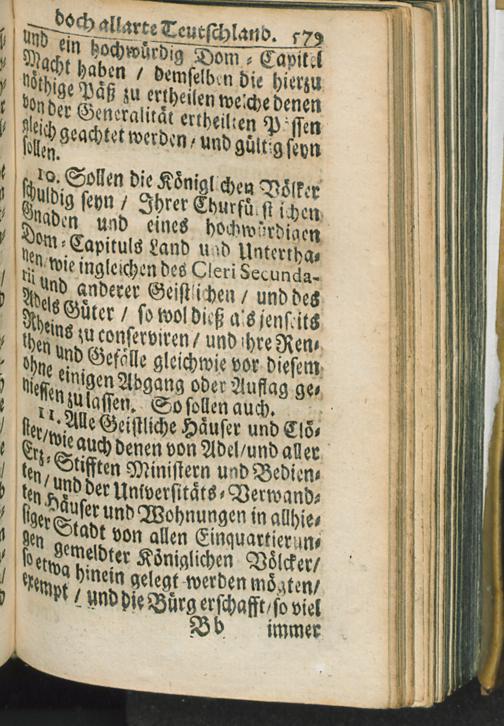 doch allarte Teutschland. 579
und ein hochwürdig Dom-Capitel
Macht haben / demselben die hierzu
nöthige Päß zu ertheilen welche denen
von der Generalität ertheilten Pässen
gleich geachtet werden / und gültig seyn
sollen.
10. Sollen die Königlichen Völker
schuldig seyn / Ihrer Churfürstlichen
Gnaden und eines hochwürdigen
Dom-Capituls Land und Untertha-
nen, wie ingleichen des Cleri Secunda-
rii und anderer Geistlichen / und des
Adels Güter / so wol dieß als jenseits
Rheins zu conserviren / und ihre Ren-
then und Gefälle gleichwie vor diesem
ohne einigen Abgang oder Auflag ge-
niessen zu lassen. So sollen auch.
11. Alle Geistliche Häuser und Clö-
ster/wie auch denen von Adel/und aller
Ertz-Stifften Ministern und Bedien-
ten / und der Universitäts-Verwand-
ten Häuser und Wohnungen in allhie-
siger Stadt von allen Einquartierun-
gen gemeldter Königlichen Völcker/
so etwa hinein gelegt werden mögten/
exempt / und die Bürgerschafft/so viel
Bb immer